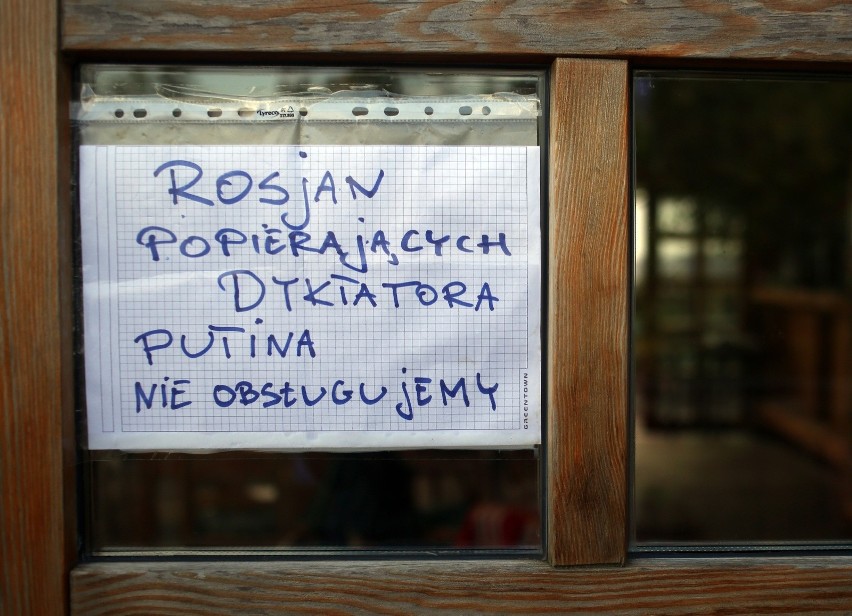 Lyreco
ROSjAN
POPIERAjĄCYCH
DYKTATORA
PUTiNA
NiE OBSŁUGUjEMY
GREENTOWN